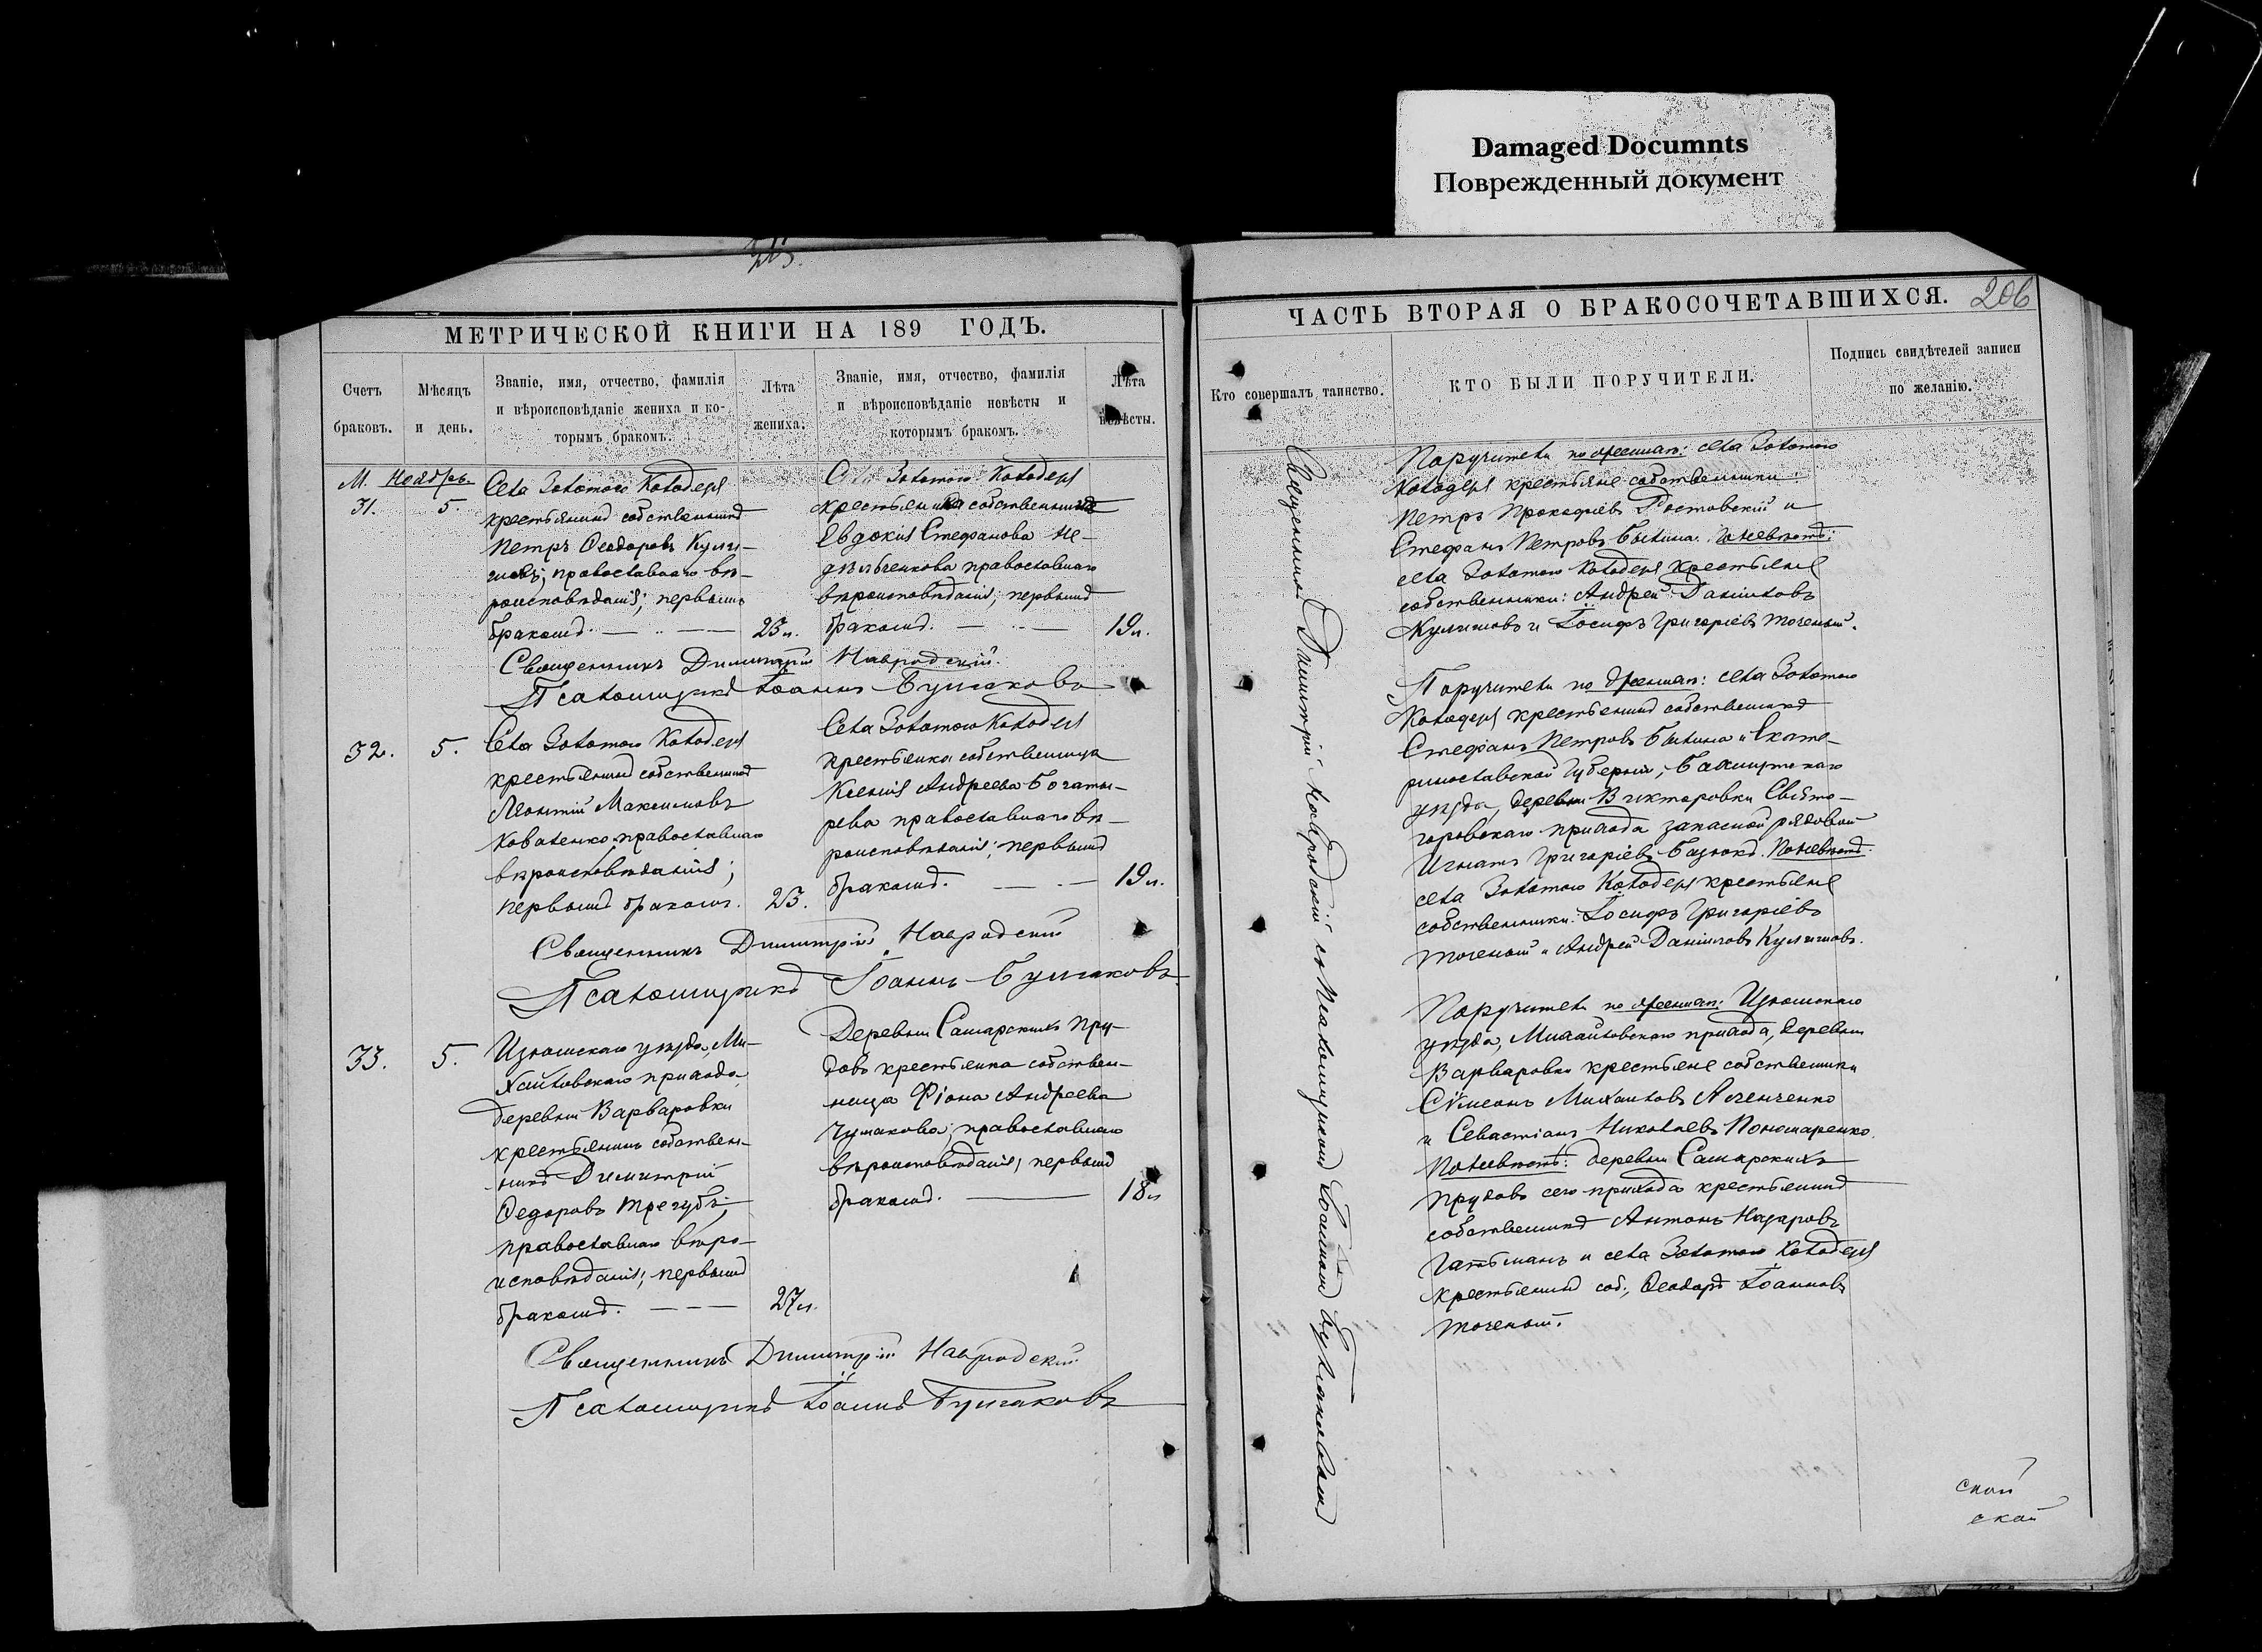 Damaged Documnts
Поврежденный документ
МЕТРИЧЕСКОЙ КНИГИ НА 189 ГОДЪ.
Счетъ браковъ.
Мѣсяцъ и день.
Званіе, имя, отчество, фамилія
и вѣроисповѣданіе жениха и ко-
торымъ бракомъ.
Лѣта жениха.
Званіе, имя, отчество, фамилія
и вѣроисповѣданіе невѣсты и
которымъ бракомъ.
Лѣта невѣсты.
М. Ноябрь
31. 5.
Села Золотого Колодезя
крестьянинъ собственникъ
Петръ Ѳеодоровъ
православнаго вѣ-
роисповѣданія; первымъ
бракомъ. 23 л.
Села Золотого Колодезя
крестьянка собственница
Евдокія Стефанова Не-
дѣльченкова православнаго
вѣроисповѣданія; первымъ
бракомъ. 19 л.
Священникъ Димитрій Навродскій.
Псаломщикъ Іоаннъ Булгаковъ
32. 5.
Села Золотого Колодезя
крестьянинъ собственникъ
Леонтій Максимовъ
Коваленко, православнаго
вѣроисповѣданія;
первымъ бракомъ. 23.
Села Золотого Колодезя
крестьянка собственница
Ксенія Андреева Богаты-
рева православнаго вѣ-
роисповѣданія; первымъ
бракомъ. 19 л.
Священникъ Димитрій Навродскій
Псаломщикъ Іоаннъ Булгаковъ
33. 5.
Изюмскаго уѣзда, Ми-
хайловскаго прихода,
деревни Варваровки
крестьянинъ собствен-
никъ Димитрій
Ѳедоровъ Трегубъ;
православнаго вѣро-
исповѣданія; первымъ
бракомъ. 27 л.
Деревни Самарскихъ Пру-
довъ крестьянка собствен-
ница Фіона Андреева
Чумакова; православнаго
вѣроисповѣданія; первымъ
бракомъ. 18 л
Священникъ Димитрій Навродскій
Псаломщикъ Іоаннъ Булгаковъ
ЧАСТЬ ВТОРАЯ О БРАКОСОЧЕТАВШИХСЯ. 206
Кто совершалъ таинство.
КТО БЫЛИ ПОРУЧИТЕЛИ.
Подпись свидѣтелей записи
по желанію.
Священникъ Димитрій Навродскій съ псаломщикомъ Іоанномъ Булгаковымъ
Поручители по женихѣ: села Золотого
Колодезя крестьяне собственники:
Петръ Прокофіевъ Ростовскій и
Стефанъ Петровъ Былина. По невѣстѣ:
села Золотого Колодезя крестьяне
собственники: Андрей Даніиловъ
и Іосифъ Григоріевъ Точеный.
Поручители по женихѣ: села Золотого
Колодезя крестьянинъ собственникъ
Стефанъ Петровъ Былина и Екате-
ринославской губерніи, Бахмутскаго
уѣзда, деревни Викторовки Свято-
горовскаго прихода запасной рядовой
Игнатъ Григоріевъ По невѣстѣ:
села Золотого Колодезя крестьяне
собственники: Іосифъ Григоріевъ
Точеный и Андрей Даніиловъ
Поручители по женихѣ: Изюмскаго
уѣзда, Михайловскаго прихода, деревни
Варваровки крестьяне собственники
Сѵмеонъ Михаиловъ
и Севастіанъ Николаевъ Пономаренко.
По невѣстѣ: деревни Самарскихъ
Прудовъ сего прихода крестьянинъ
собственникъ Антонъ Назаровъ
Гатьманъ и села Золотого Колодезя
крестьянинъ соб., Ѳеодоръ Іоанновъ
Точеный.
ской
ской